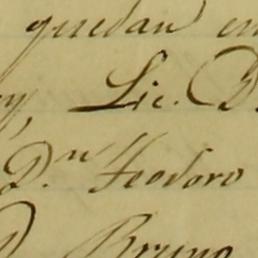 quedan en
y, Lic. D.
D.n Teodoro
D. Bruno